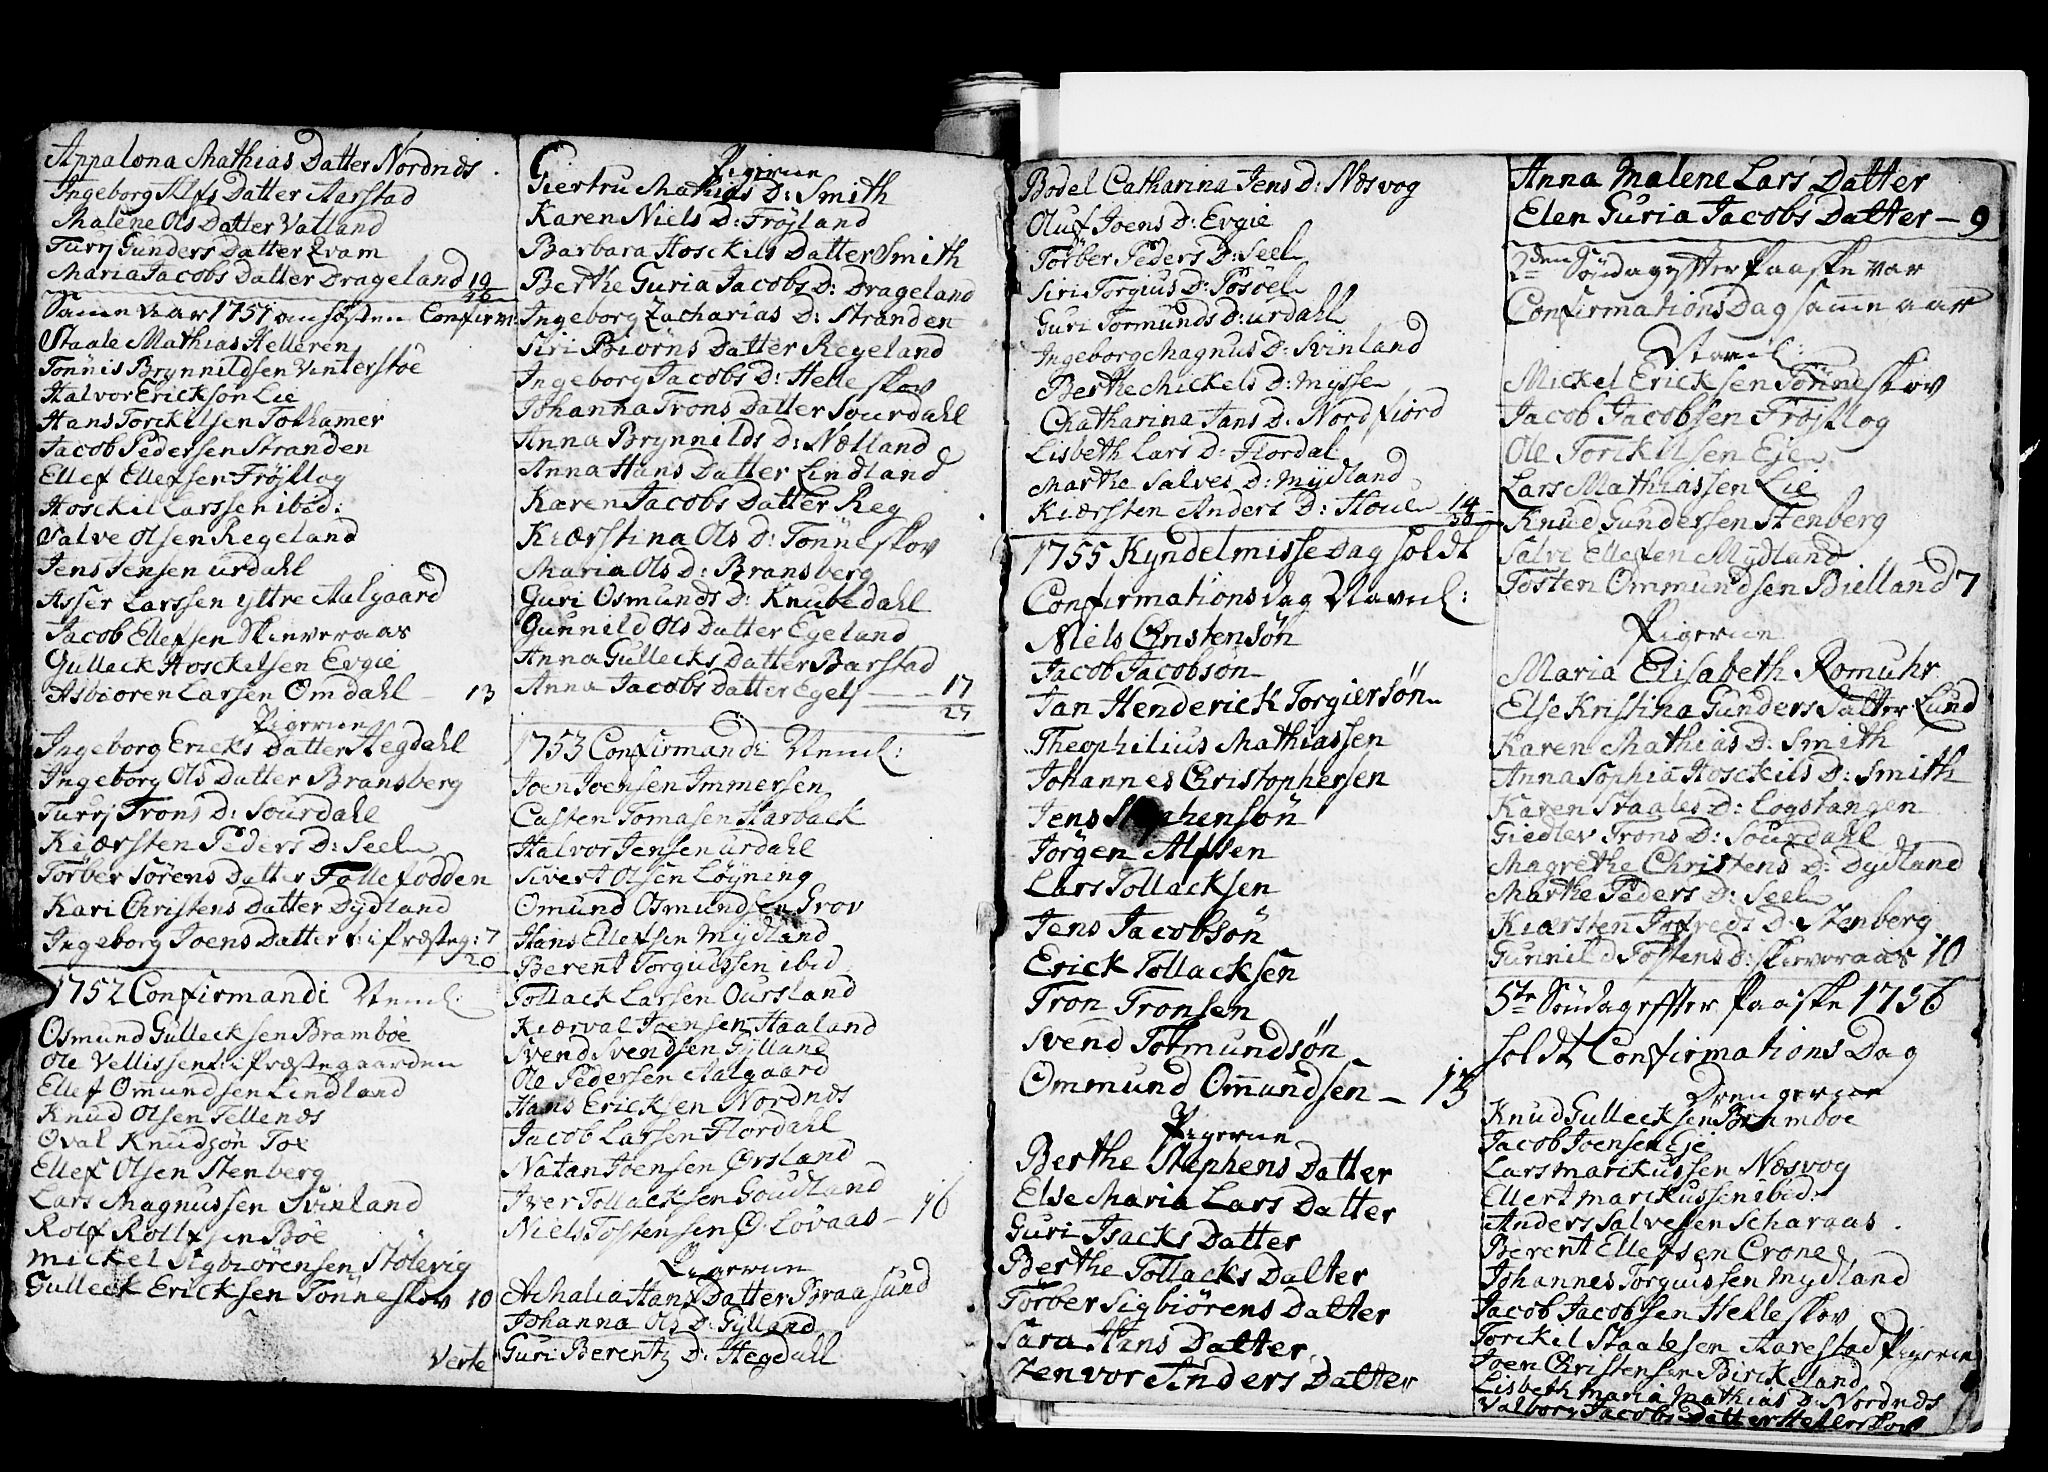 Appalona Mathias Datter Nordnds
Ingeborg Alfs Datter Aarstad
Malene Ols Datter Vatland
Turi Gunders Datter Qvam
Maria Jacobs Datter Drageland 19
Samme aar 1751 om Hösten Confirm:
Staale Mathias Helleren
Tönnis Brynnildsen Vinterstöe
Halvor Erickson Lie
Hans Torckilsen Tothamer
Jacob Pedersen Stranden
Ellef Ellefsen Fröjtlog
Hosckil Larssen ibid:
Salve Olsen Regeland
Jens Jensen Urdahl
Asser Larssen yttre Aalgaard
Jacob Ellefsen Skieveraas
Gulleck Hosckelsen Evgie
Asbiören Larsen Omdahl 13
Pigerne
Ingeborg Ericks Datter Hegdahl
Ingeborg Ols Datter Bransberg
Turi Trons D: Sourdahl
Kiærsten Peders D: Seel
Törber Sörens Datter Follefodden
Kari Christens Datter Dydland
Ingeborg Joens Datter i Præsteg: 7
20
1752 Confirmandi
Osmund Gullecksen Bramböe
Ole Vellissen i Præstegaarden
Ellef Omundsen Lindland
Knud Olsen Tellends
Oval Knudson Toe
Ellef Olsen Stenberg
Lars Magnussen Svinland
Rolf Rollfsen Böe
Mickel Sigbiörensen Stölevig
Gulleck Ericksen Tönneskov 10
Verte
Pigerne
Giertru Mathias D: Smith
Karen Niels D: Fröjland
Barbara Hosckils Datter Smith
Berthe Guria Jacobs D: Drageland
Ingeborg Zacharias D: Stranden
Siri Biörns Datter Regeland
Ingeborg Jacobs D: Helleskov
Johanna Trons Datter Sourdahl
Anna Brynnilds D: Nælland
Anna Hans Datter Lindland
Karen Jacobs Datter Reg
Kiærstina Ols D: Tönneskov
Maria Ols D: Bransberg
Guri Osmunds D: Knubedahl
Gunnild Ols Datter Egeland
Anna Gullecks Datter Barstad
Anna Jacobs Datter Egel 17
27
1753 Confirmandi
Joen Joensen Immersen
Casten Tomasen Harback
Halvor Jensen Urdahl
Sivert Olsen Löyning
Omund Osmundsen Grov
Hans Ellefsen Mydland
Berent Torguissen ibid
Tollack Larsen Oursland
Kiærval Joensen Haaland
Svend Svendsen Gylland
Ole Pedersen Aalgaard
Hans Ericksen Nordnds
Jacob Larsen Flordahl
Natan Joensen Örsland
Iver Tollacksen Goudland
Niels Tostensen Ö: Lövaas 16
Pigerne
Athalia Hans Datter Braasund
Johanna Ols D: Gylland
Guri Berentz D: Hegdahl
Bodel Catharina Jens D: Næsvog
Oluf Joens D: Evgie
Törber Peders D: Seel
Siri Torgius D: Josöel
Guri Tormunds D: Urdahl
Ingeborg Magnus D: Svinland
Berthe Mickels D: Mysse
Chatharina Jans D: Nordfiord
Lisbeth Lars D: Flordal
Marthe Salves D: Mydland
Kiærsten Anders D: Houe 14
30
1755 Kyndelmisse Dag holdt
Confirmations Dag
Niels Christensön
Jacob Jacobson
Jan Henderick Torgiersön
Theophilius Mathiassen
Johannes Christophersen
Jens Stephensön
Jörgen Alfsen
Lars Tollacksen
Jens Jacobsön
Erick Tollacksen
Tron Tronsen
Svend Tormundsön
Ommund Omundsen 13
Pigerne
Berthe Stephens Datter
Else Maria Lars Datter
Guri Isacks Datter
Berthe Tollacks Datter
Törber Sigbiörens Datter
Sara Hans Datter
Zenvor Anders Datter
Anna Malene Lars Datter
Elen Guria Jacobs Datter 9
2den Söndag effter Paaske var
Confirmations Dag samme aar
Mickel Ericksen Tönneskov
Jacob Jacobsen Fröjtlog
Ole Torckilsen Eje
Lars Mathiassen Lie
Knud Gundersen Stenberg
Salve Ellefsen Mydland
Tosten Ommundsen Bielland 7
Pigerne
Maria Elisabeth Romuhr
Else Kristina Gunders Datter Lund
Karen Mathias D: Smith
Anna Sophia Hosckils D: Smith
Karen Staales D: Logstangen
Giedlev Trons D: Sourdahl
Magrethe Christens D: Dydland
Marthe Peders D: Seel
Kiærsten Jofreds D: Stenberg
Gunnild Tostens D: Skieveraas 10
5te Söndag effter Paaske 1756
holdt Confirmations Dag
Drengerne
Knud Gullecksen Bramböe
Jacob Joensen Eje
Lars Marckussen Næsvog
Ellert Marckussen ibid:
Anders Salvesen Scharaas
Berent Ellefsen Crone
Johannes Torguissen Mydland
Jacob Jacobsen Helleskov
Torckil Staalesen Aarestad Pigerne
Joen Christensen Birckeland
Lisbeth Maria Mathias D: Nordnds
Valborg Jacobs Datter Helleskov